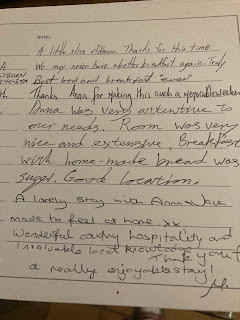 Notes
A little slice of Heaven. Thanks for this time
We may never have a better breakfast again. Truly
Best bed and breakfast "ever"
Thanks Anna for making this such a memorable weekend
Anna was very attentive to
our needs. Room was very
nice and extensive. Breakfast
with home-made bread was
super. Good location.
A lovely stay with Anna & Jack
made to feel at home xx
Wonderful country hospitality and
invaluable local knowledge
Thank you for
a really enjoyable stay!